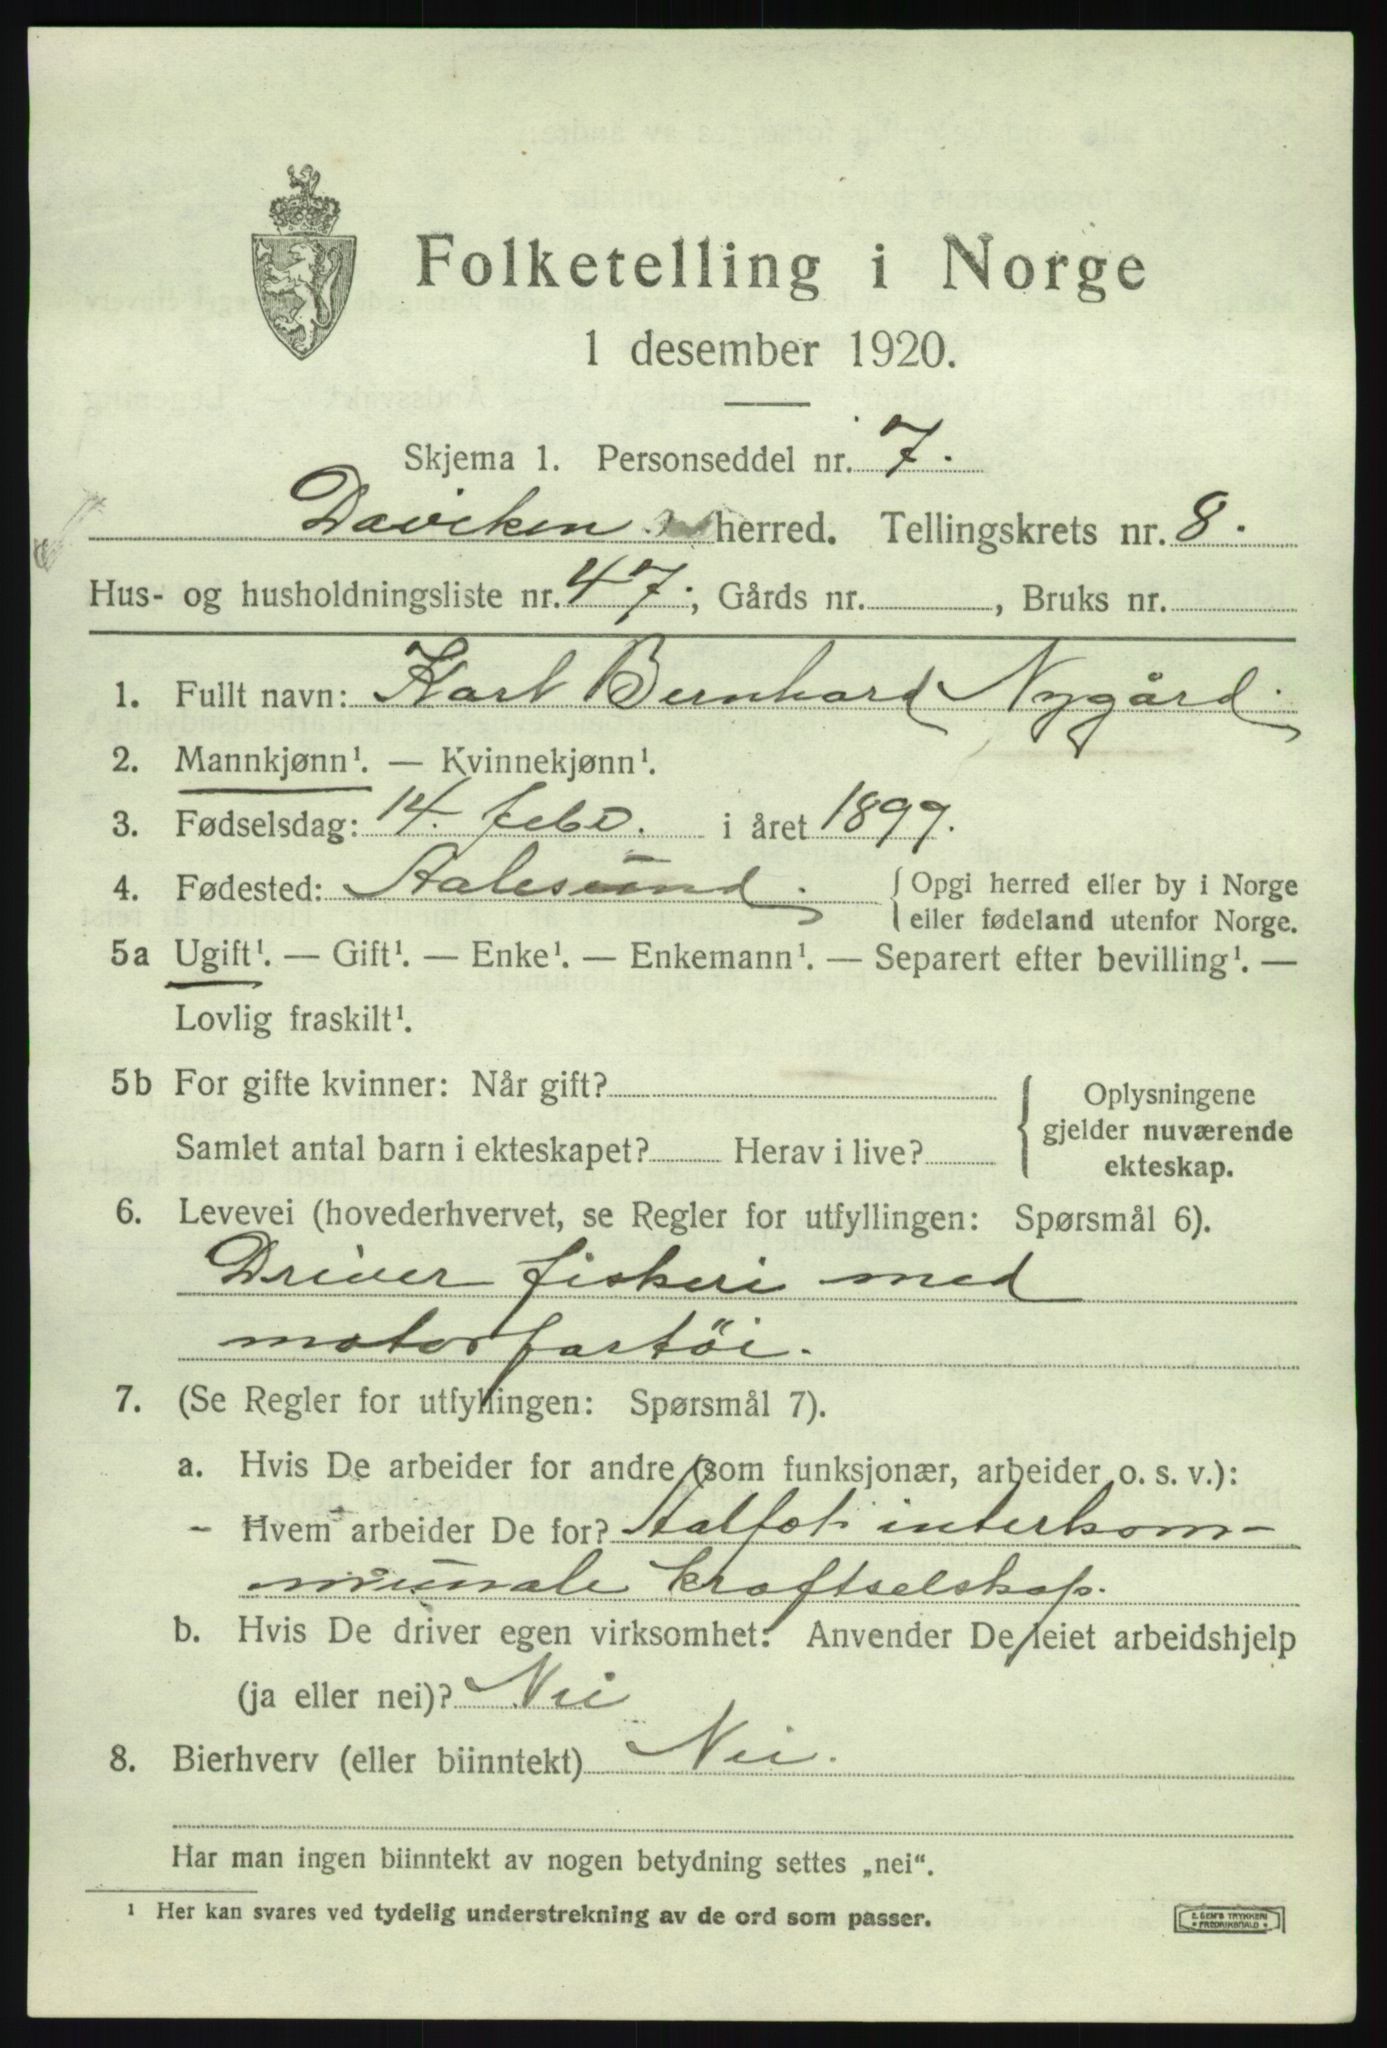 Folketelling i Norge
1 desember 1920.
Skjema 1. Personseddel nr. 7.
Daviken herred. Tellingskrets nr. 8.
Hus- og husholdningsliste nr. 47; Gårds nr. , Bruks nr.
1. Fullt navn: Karl Bernhard Nygård
2. Mannkjønn¹. — Kvinnekjønn¹.
3. Fødselsdag: 14. febr. i året 1899.
4. Fødested: Aalesund. { Opgi herred eller by i Norge
eller fødeland utenfor Norge.
5a Ugift¹. — Gift¹. — Enke¹. — Enkemann¹. — Separert efter bevilling¹. —
Lovlig fraskilt¹.
5b For gifte kvinner: Når gift? { Oplysningene
gjelder nuværende
Samlet antal barn i ekteskapet? Herav i live? ekteskap.
6. Levevei (hovederhvervet, se Regler for utfyllingen: Spørsmål 6).
Driver fiskeri med
motorfartöi.
7. (Se Regler for utfyllingen: Spørsmål 7).
a. Hvis De arbeider for andre (som funksjonær, arbeider o. s. v.):
- Hvem arbeider De for? Aalfot interkom-
munale kraftselskap.
b. Hvis De driver egen virksomhet: Anvender De leiet arbeidshjelp
(ja eller nei)? Nei
8. Bierhverv (eller biinntekt) Nei.
Har man ingen biinntekt av nogen betydning settes „nei“.
¹ Her kan svares ved tydelig understrekning av de ord som passer.
E. SEM'S TRYKKERI
FREDRIKSHALD